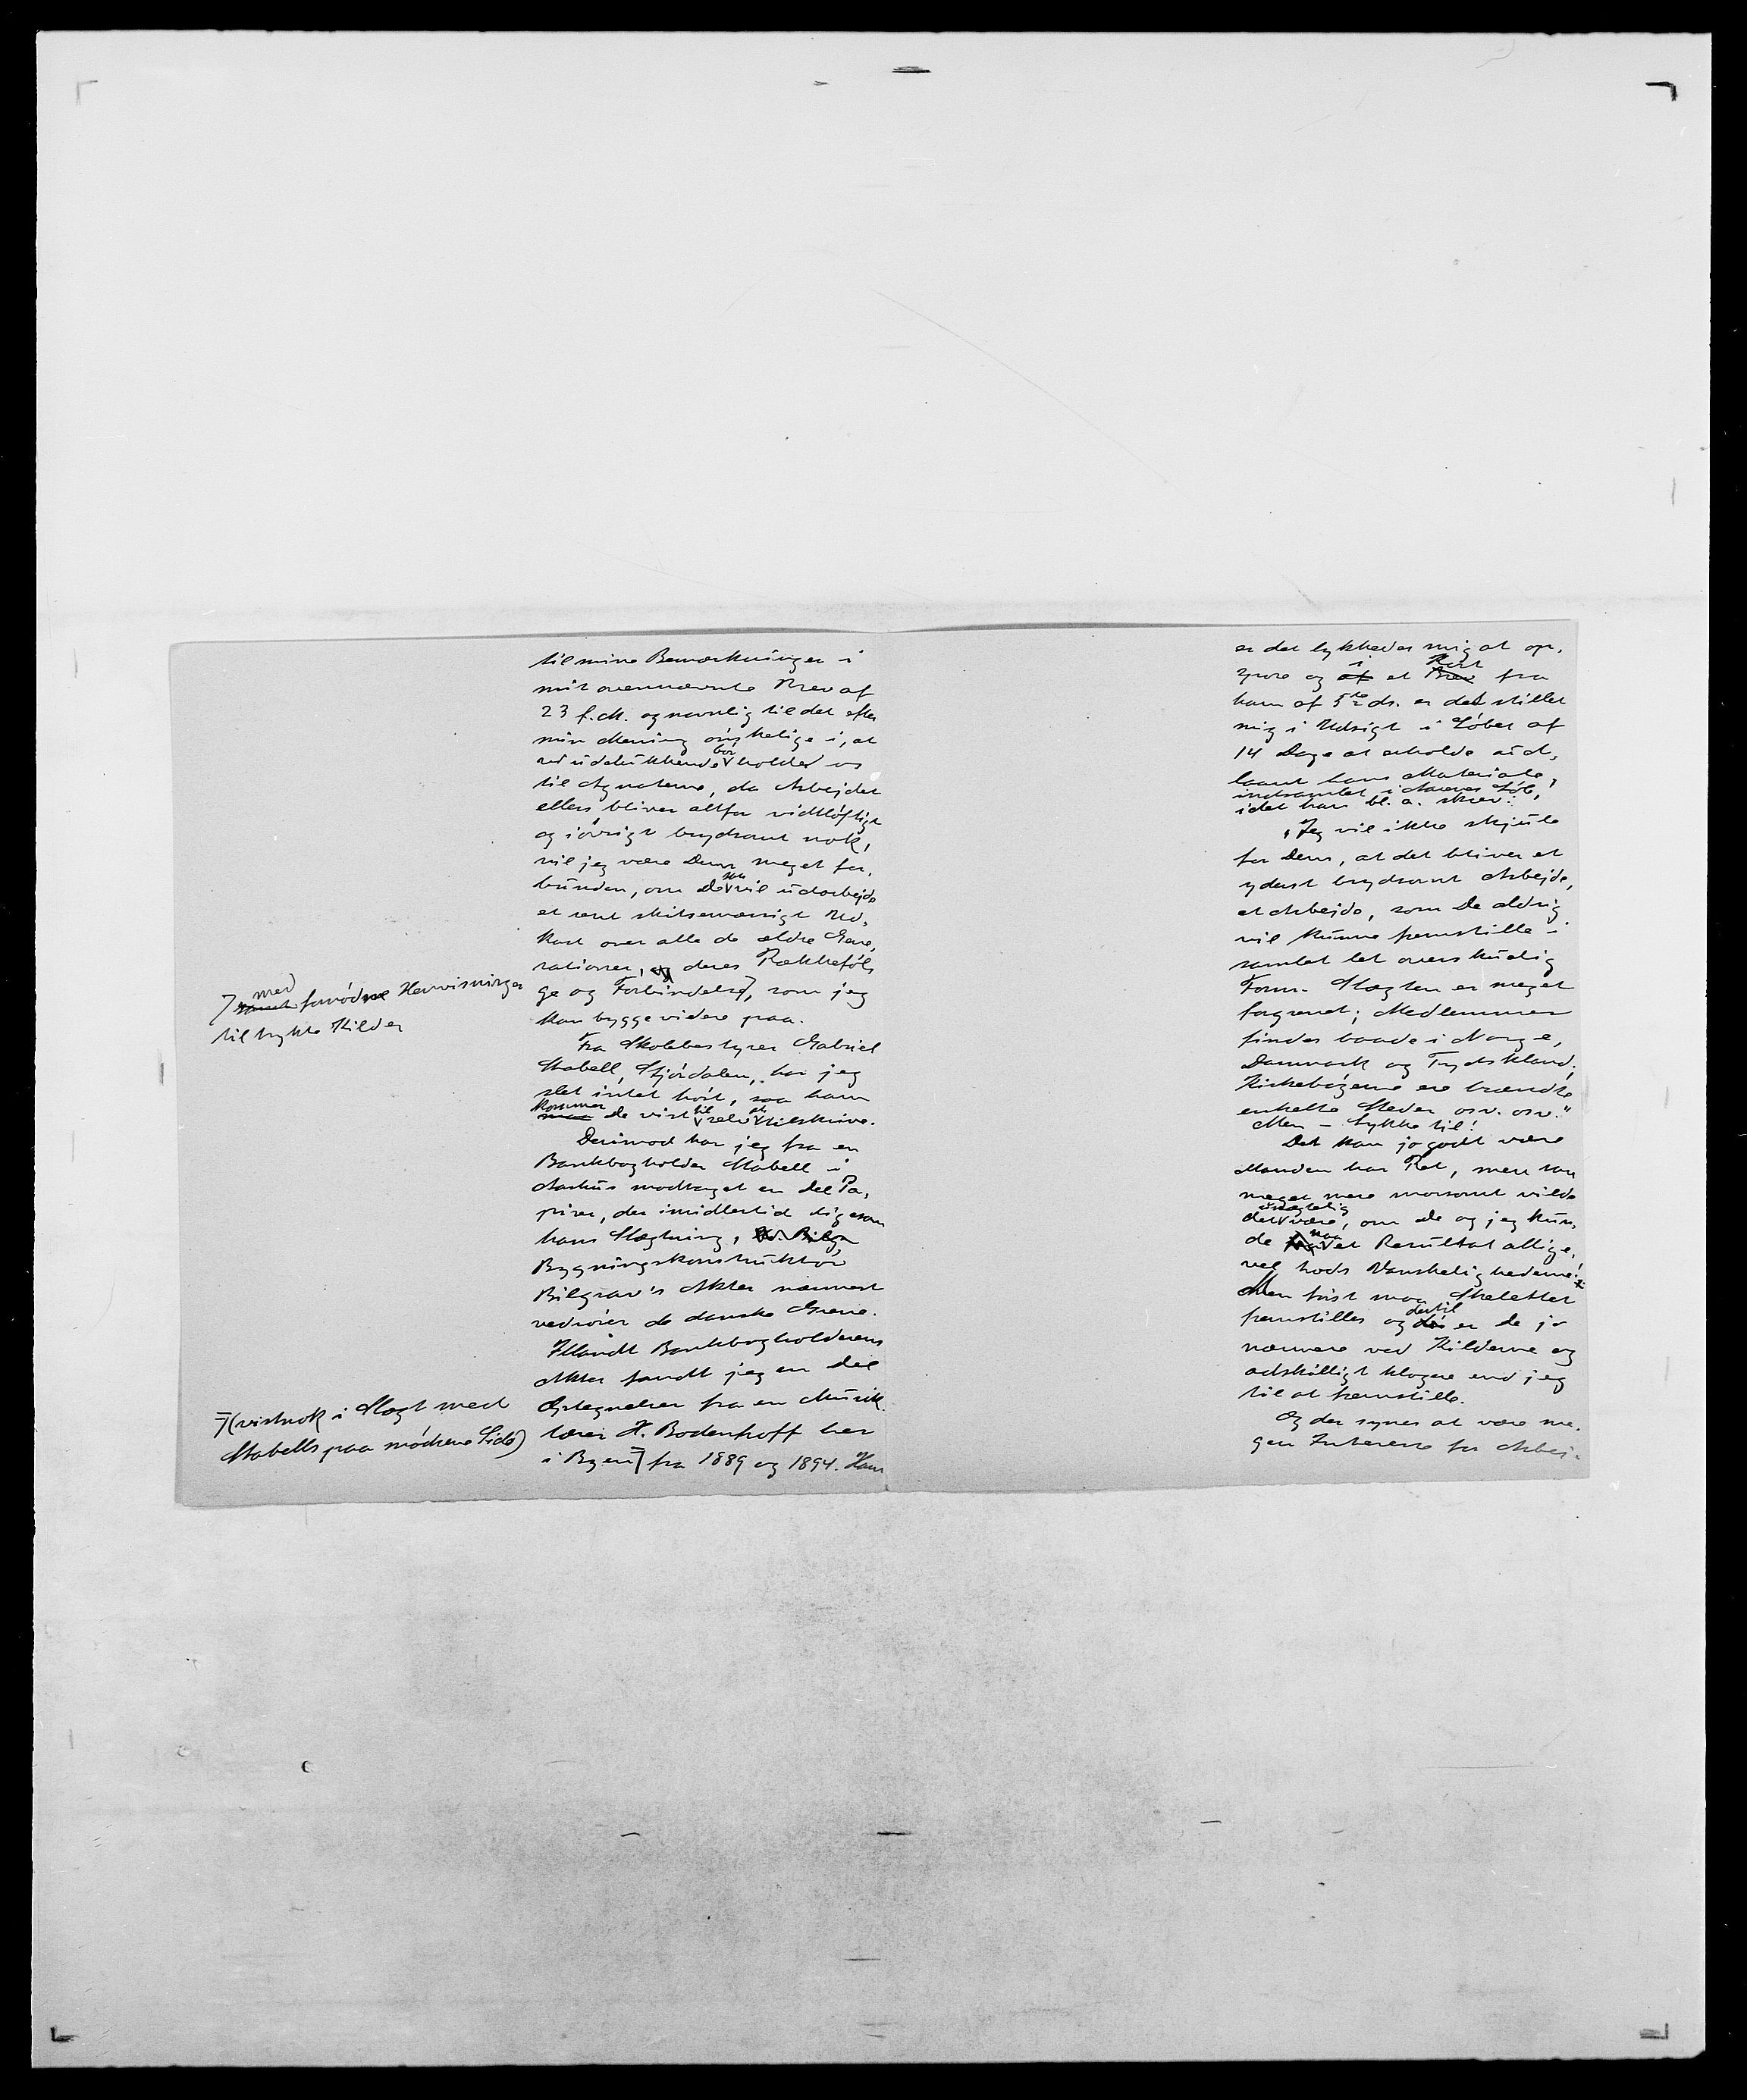 til mine Bemærkninger i
mit ovennævnte Brev af
23 f. M. og navnlig til det efter
min Mening ønskelige i, at
udelukkende bør holder os
til Agnaterne, da Arbejdet
ellers bliver altfor vidtløftigt
og iøvrigt brydsomt nok,
vil jeg være Dem meget for-
bunden, om De vil udarbejde
et rent skitsemæssigt Ud-
kast over alle de ældre Gene-
rationer, deres Rækkeføl-
ge og Forbindelse, som jeg
kan bygge videre paa.
med fornødne Henvisninger
til trykte Kilder
Fra Skolebestyrer Gabriel
Stabell, Stjørdalen, har jeg
slet intet hørt, saa ham
kommer De vist til selv at tilskrive.
Derimod har jeg fra en
Bankbogholder Stabell i
Aarhus modtaget en Del Pa-
pirer, der imidlertid ligesom
hans Slægtning,
Bygningskonstruktør
Bilgrav's Akter nærmest
vedrører de danske Grene.
Iblandt Bankbogholderens
Akter fandt jeg en Del
Optegnelser fra en Musik-
lærer H. Bodenhoff her
i Byen fra 1889 og 1894. Ham
(vistnok i Slægt med
Stabells paa mødrene Side)
er det lykkedes mig at op-
spore og i et Kort fra
ham af 5te ds. er det stillet
mig i Udsigt i Løbet af
14 Dage at erholde ud-
laant hans Materiale,
indsamlet i Aarenes Løb,
idet han bl. a. skrev:
"Jeg vil ikke skjule
for Dem, at det bliver et
yderst brydsomt Arbejde,
et Arbejde, som De aldrig
vil kunne fremstille i
samlet let overskuelig
Form. Slægten er meget
forgrenet; Medlemmer
findes baade i Norge,
Danmark og Tydskland;
Kirkebøgerne ere brændte
enkelte Steder osv. osv."
Men - Lykke til!
Det kan jo godt være
Manden har Ret, men saa
meget mere morsomt vilde
det unægtelig være, om De og jeg kun-
de naa et Resultat allige-
vel trods Vanskelighederne!
Men først maa Skelettet
fremstilles og dertil er De jo
nærmere ved Kilderne og
adskilligt klogere end jeg
til at fremstille.
Og der synes at være me-
gen Interesse for Arbej-